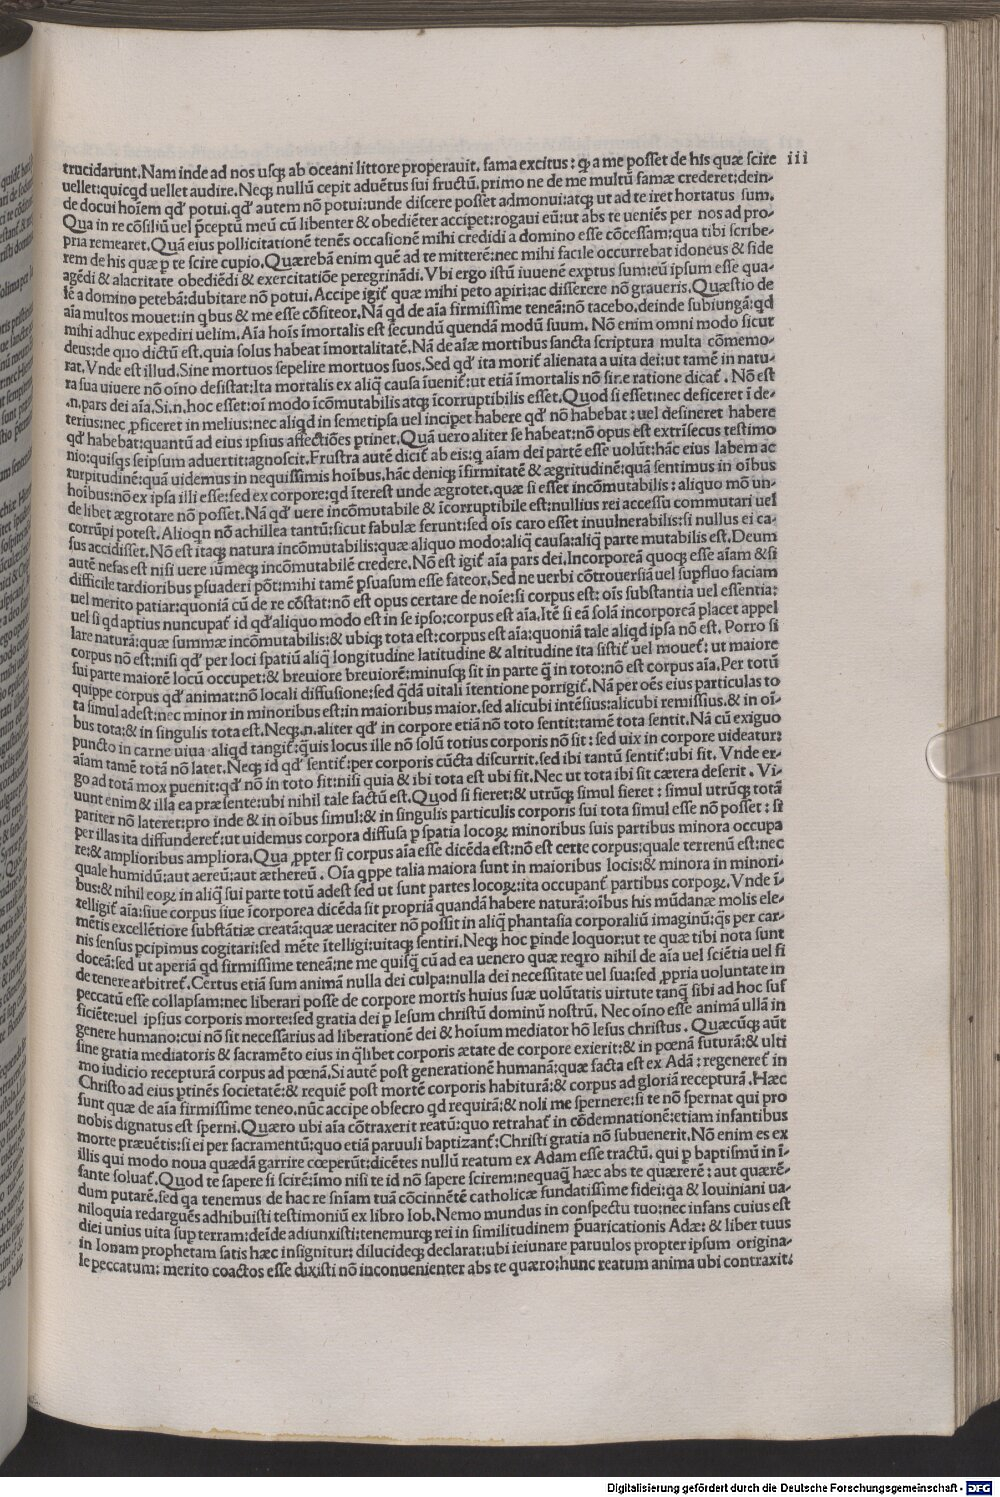 trucidarunt.Nam inde ad nos usq; ab oceani littore properauit. fama excitus: q, a me posset de his quæ scire iii
uellet:quicqd uellet audire.Neq; nullũ cepit aduẽtus sui fructũ.primo ne de me multũ famæ crederet:dein-
de docui hoĩem qd' potui.qd' autem nõ potui:unde discere posset admonui:atq; ut ad te iret hortatus sum.
Qua in re cõsiliũ uel p̃ceptũ meũ cũ libenter & obediẽter accipet:rogaui eũ:ut abs te ueniẽs per nos ad pro-
pria remearet.Quã eius pollicitationẽ tenẽs occasionẽ mihi credidi a domino esse cõcessam:qua tibi scribe-
rem de his quæ p te scire cupio.Quærebã enim quẽ ad te mitterẽ:nec mihi facile occurrebat idoneus & fide
agẽdi & alacritate obediẽdi & exercitatiõe peregrinãdi.Vbi ergo istũ iuuenẽ exptus sum:eũ ipsum esse qua-
lẽ a domino petebã:dubitare nõ potui.Accipe igit̃ quæ mihi peto apiri:ac disserere nõ graueris.Quæstio de
aĩa multos mouet:in qbus & me esse cõfiteor.Nã qd de aĩa firmissime teneã:nõ tacebo.deinde subiungã:qd
mihi adhuc expediri uelim.Aĩa hoĩs ĩmortalis est secundũ quendã modũ suum. Nõ enim omni modo sicut
deus:de quo dictũ est.quia solus habeat ĩmortalitatẽ.Nã de aĩæ mortibus sancta scriptura multa cõmemo-
rat.Vnde est illud.Sine mortuos sepelire mortuos suos.Sed qd' ita morit̃ alienata a uita dei:ut tamẽ in natu-
ra sua uiuere nõ oĩno desistat:Ita mortalis ex aliq̃ causa ĩuenit̃:ut etiã ĩmortalis nõ sine ratione dicat̃. Nõ est
.n.pars dei aĩa.Si.n.hoc esset:oĩ modo ĩcõmutabilis atq; ĩcorruptibilis esset.Quod si esset:nec deficeret ĩ de-
terius:nec ꝓficeret in melius:nec aliqd in semetipsa uel incipet habere qd' nõ habebat: uel desineret habere
qd' habebat:quantũ ad eius ipsius affectiões ptinet.Quã uero aliter se habeat:nõ opus est extrĩsecus testimo
nio:quisqs seipsum aduertit:agnoscit.Frustra autẽ dicit̃ ab eis:q aĩam dei partẽ esse uolũt:hãc eius labem ac
turpitudinẽ:quã uidemus in nequissimis hoĩbus.hãc deniq; ĩfirmitatẽ & ægritudinẽ:quã sentimus in oĩbus
hoĩbus:nõ ex ipsa illi esse:sed ex corpore:qd ĩterest unde ægrotet.quæ si esset incõmutabilis: aliquo mõ un-
de libet ægrotare nõ posset.Nã qd' uere incõmutabile & ĩcorruptibile est:nullius rei accessu commutari uel
corrũpi potest.Alioqn nõ achillea tantũ:sicut fabulæ ferunt:sed oĩs caro esset inuulnerabilis:si nullus ei ca-
sus accidisset.Nõ est itaq; natura incõmutabilis:quæ aliquo modo:aliq̃ causa:aliq̃ parte mutabilis est.Deum
autẽ nefas est nisi uere sũmeq; incõmutabilẽ credere.Nõ est igit̃ aĩa pars dei.Incorporeã quoq; esse aĩam & si
difficile tardioribus psuaderi põt:mihi tamẽ psuasum esse fateor.Sed ne uerbi cõtrouersiã uel supfluo faciam
uel merito patiar:quoniã cũ de re cõstat:nõ est opus certare de noĩe:si corpus est: oĩs substantia uel essentia:
uel si qd aptius nuncupat̃ id qd' aliquo modo est in se ipso:corpus est aĩa.Itẽ si eã solã incorporeã placet appel
lare naturã:quæ summæ incõmutabilis:& ubiq; tota est:corpus est aĩa:quoniã tale aliqd ipsa nõ est. Porro si
corpus nõ est:nisi qd' per loci spatiũ aliq̃ longitudine latitudine & altitudine ita sistit̃ uel mouet̃: ut maiore
sui parte maiorẽ locũ occupet:& breuiore breuiorẽ:minusq; sit in parte q̃ in toto:nõ est corpus aĩa.Per totũ
quippe corpus qd' animat:nõ locali diffusione:sed q̃dã uitali ĩtentione porrigit̃.Nã per oẽs eius particulas to
ta simul adest:nec minor in minoribus est:in maioribus maior.sed alicubi intẽsius:alicubi remissius.& in oĩ-
bus tota:& in singulis tota est.Neq;.n.aliter qd' in corpore etiã nõ toto sentit:tamẽ tota sentit.Nã cũ exiguo
puncto in carne uiua aliqd tangit̃:q̃uis locus ille nõ solũ totius corporis nõ sit: sed uix in corpore uideatur:
aĩam tamẽ totã nõ latet.Neq; id qd' sentit̃:per corporis cũcta discurrit.sed ibi tantũ sentit̃:ubi fit. Vnde er-
go ad totã mox puenit:qd' nõ in toto fit:nisi quia & ibi tota est ubi fit.Nec ut tota ibi sit cætera deserit. Vi-
uunt enim & illa ea præsente:ubi nihil tale factũ est.Quod si fieret:& utrũq; simul fieret: simul utrũq; totã
pariter nõ lateret:pro inde & in oĩbus simul:& in singulis particulis corporis sui tota simul esse nõ posset: si
per illas ita diffunderet̃:ut uidemus corpora diffusa p spatia locoꝝ minoribus suis partibus minora occupa
re:& amplioribus ampliora.Qua ꝓpter si corpus aĩa esse dicẽda est:nõ est certe corpus:quale terrenũ est:nec
quale humidũ:aut aereũ:aut æthereũ. Oĩa qppe talia maiora sunt in maioribus locis:& minora in minori-
bus:& nihil eoꝝ in aliq̃ sui parte totũ adest sed ut sunt partes locoꝝ:ita occupant̃ partibus corpoꝝ.Vnde ĩ-
telligit̃ aĩa:siue corpus siue ĩcorporea dicẽda sit propriã quandã habere naturã:oĩbus his mũdanæ molis ele-
mẽtis excellẽtiore substãtiæ creatã:quæ ueraciter nõ possit in aliq̃ phantasia corporaliũ imaginũ:q̃s per car-
nis sensus pcipimus cogitari:sed mẽte ĩtelligi:uitaq; sentiri.Neq; hoc pinde loquor:ut te quæ tibi nota sunt
doceã:sed ut aperiã qd firmissime teneã:ne me quisq̃ cũ ad ea uenero quæ reqro nihil de aĩa uel sciẽtia uel fi
de tenere arbitret̃.Certus etiã sum animã nulla dei culpa:nulla dei necessitate uel sua:sed ꝓpria uoluntate in
peccatũ esse collapsam:nec liberari posse de corpore mortis huius suæ uolũtatis uirtute tanq̃ sibi ad hoc suf
ficiẽte:uel ipsius corporis morte:sed gratia dei p Iesum christũ dominũ nostrũ. Nec oĩno esse animã ullã in
genere humano:cui nõ sit necessarius ad liberationẽ dei & hoĩum mediator hõ Iesus christus. Quæcũq; aũt
sine gratia mediatoris & sacramẽto eius in q̃libet corporis ætate de corpore exierit:& in pœnã futurã:& ulti
mo iudicio recepturã corpus ad pœnã.Si autẽ post generationẽ humanã:quæ facta est ex Adã: regeneret̃ in
Christo ad eius ptinẽs societatẽ:& requiẽ post mortẽ corporis habiturã:& corpus ad gloriã recepturã.Hæc
sunt quæ de aĩa firmissime teneo.nũc accipe obsecro qd requirã:& noli me spernere:si te nõ spernat qui pro
nobis dignatus est sperni.Quæro ubi aĩa cõtraxerit reatũ:quo retrahat̃ in cõdemnationẽ:etiam infantibus
morte præuẽtis:si ei per sacramentũ:quo etiã paruuli baptizant̃:Christi gratia nõ subuenerit.Nõ enim es ex
illis qui modo noua quædã garrire cœperũt:dicẽtes nullũ reatum ex Adam esse tractũ. qui p baptismũ in ĩ-
fante soluat̃.Quod te sapere si scirẽ:ĩmo nisi te id nõ sapere scirem:nequaq̃ hæc abs te quærerẽ: aut quærẽ-
dum putarẽ.sed qa tenemus de hac re sñiam tuã cõcinnẽtẽ catholicæ fundatissime fidei:qa & Iouiniani ua-
niloquia redarguẽs adhibuisti testimoniũ ex libro Iob.Nemo mundus in conspectu tuo:nec infans cuius est
diei unius uita sup terram:deĩde adiunxisti:tenemurq; rei in similitudinem p̃uaricationis Adæ: & liber tuus
in Ionam prophetam satis hæc insignitur: dilucideq; declarat:ubi ieiunare paruulos propter ipsum origina-
le peccatum: merito coactos esse dixisti nõ inconuenienter abs te quæro:hunc reatum anima ubi contraxit:
Digitalisierung gefördert durch die Deutsche Forschungsgemeinschaft - DFG